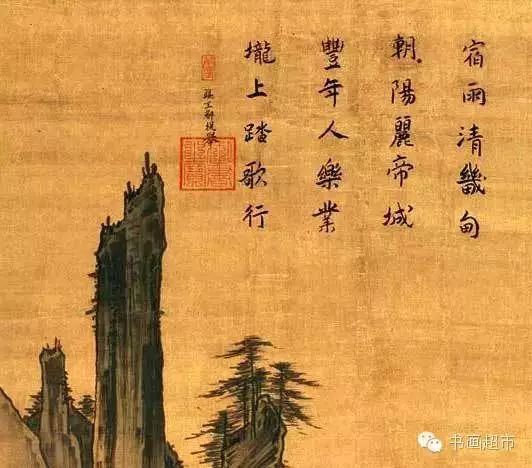 宿雨清畿甸
朝陽麗帝城
豐年人樂業
壠上踏歌行
书画超市